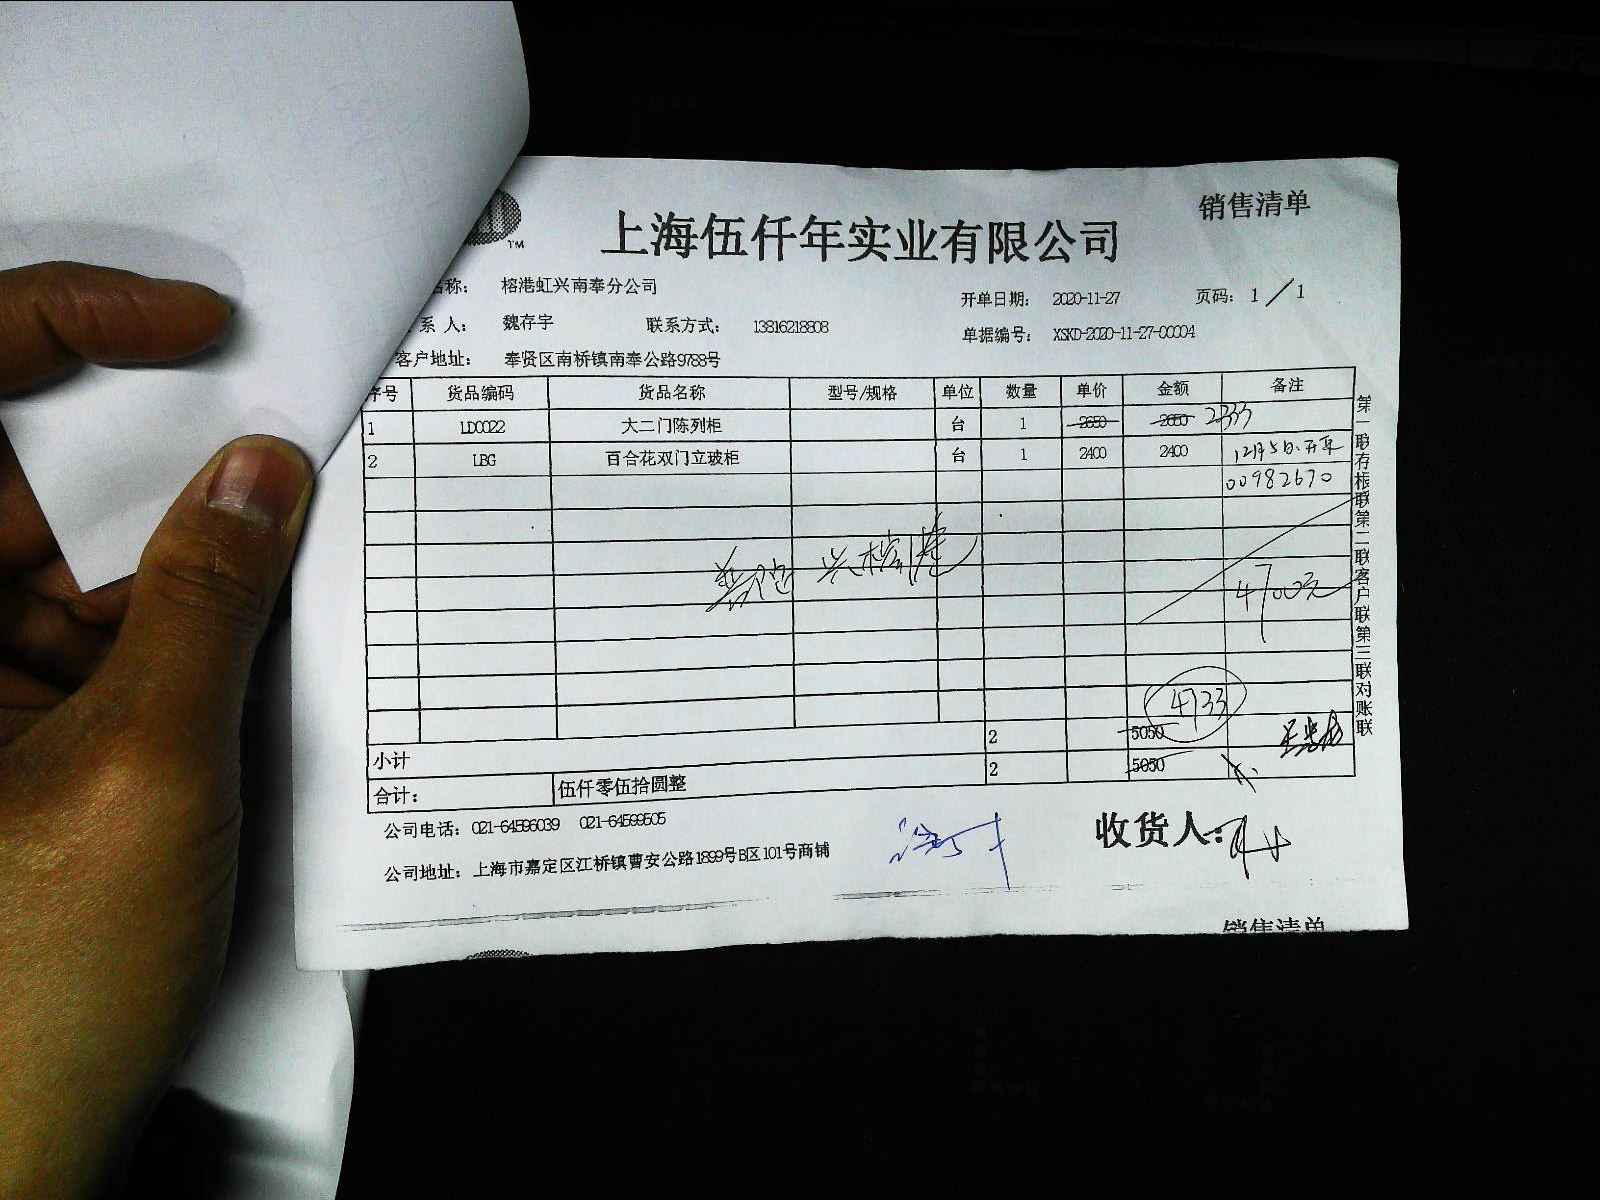 销售清单
TM
上海伍仟年实业有限公司
名称: 榕港虹兴南奉分公司
开单日期: 2020-11-27 页码: 1/1
系人: 魏存宇 联系方式: 13816218808
单据编号: XSKD-2020-11-27-00004
客户地址: 奉贤区南桥镇南奉公路9788号
序号 货品编码 货品名称 型号/规格 单位 数量 单价 金额 备注
1 LD0022 大二门陈列柜 台 1 2650 2650 2333
2 LBG 百合花双门立玻柜 台 1 2400 2400 12月5日.开单
00982670
4700元
4733
小计 2 5050
合计: 伍仟零伍拾圆整 2 5050
第一联存根联第二联客户联第三联对账联
公司电话: 021-64596039 021-64599505
收货人:
公司地址: 上海市嘉定区江桥镇曹安公路1899号B区101号商铺
销售清单